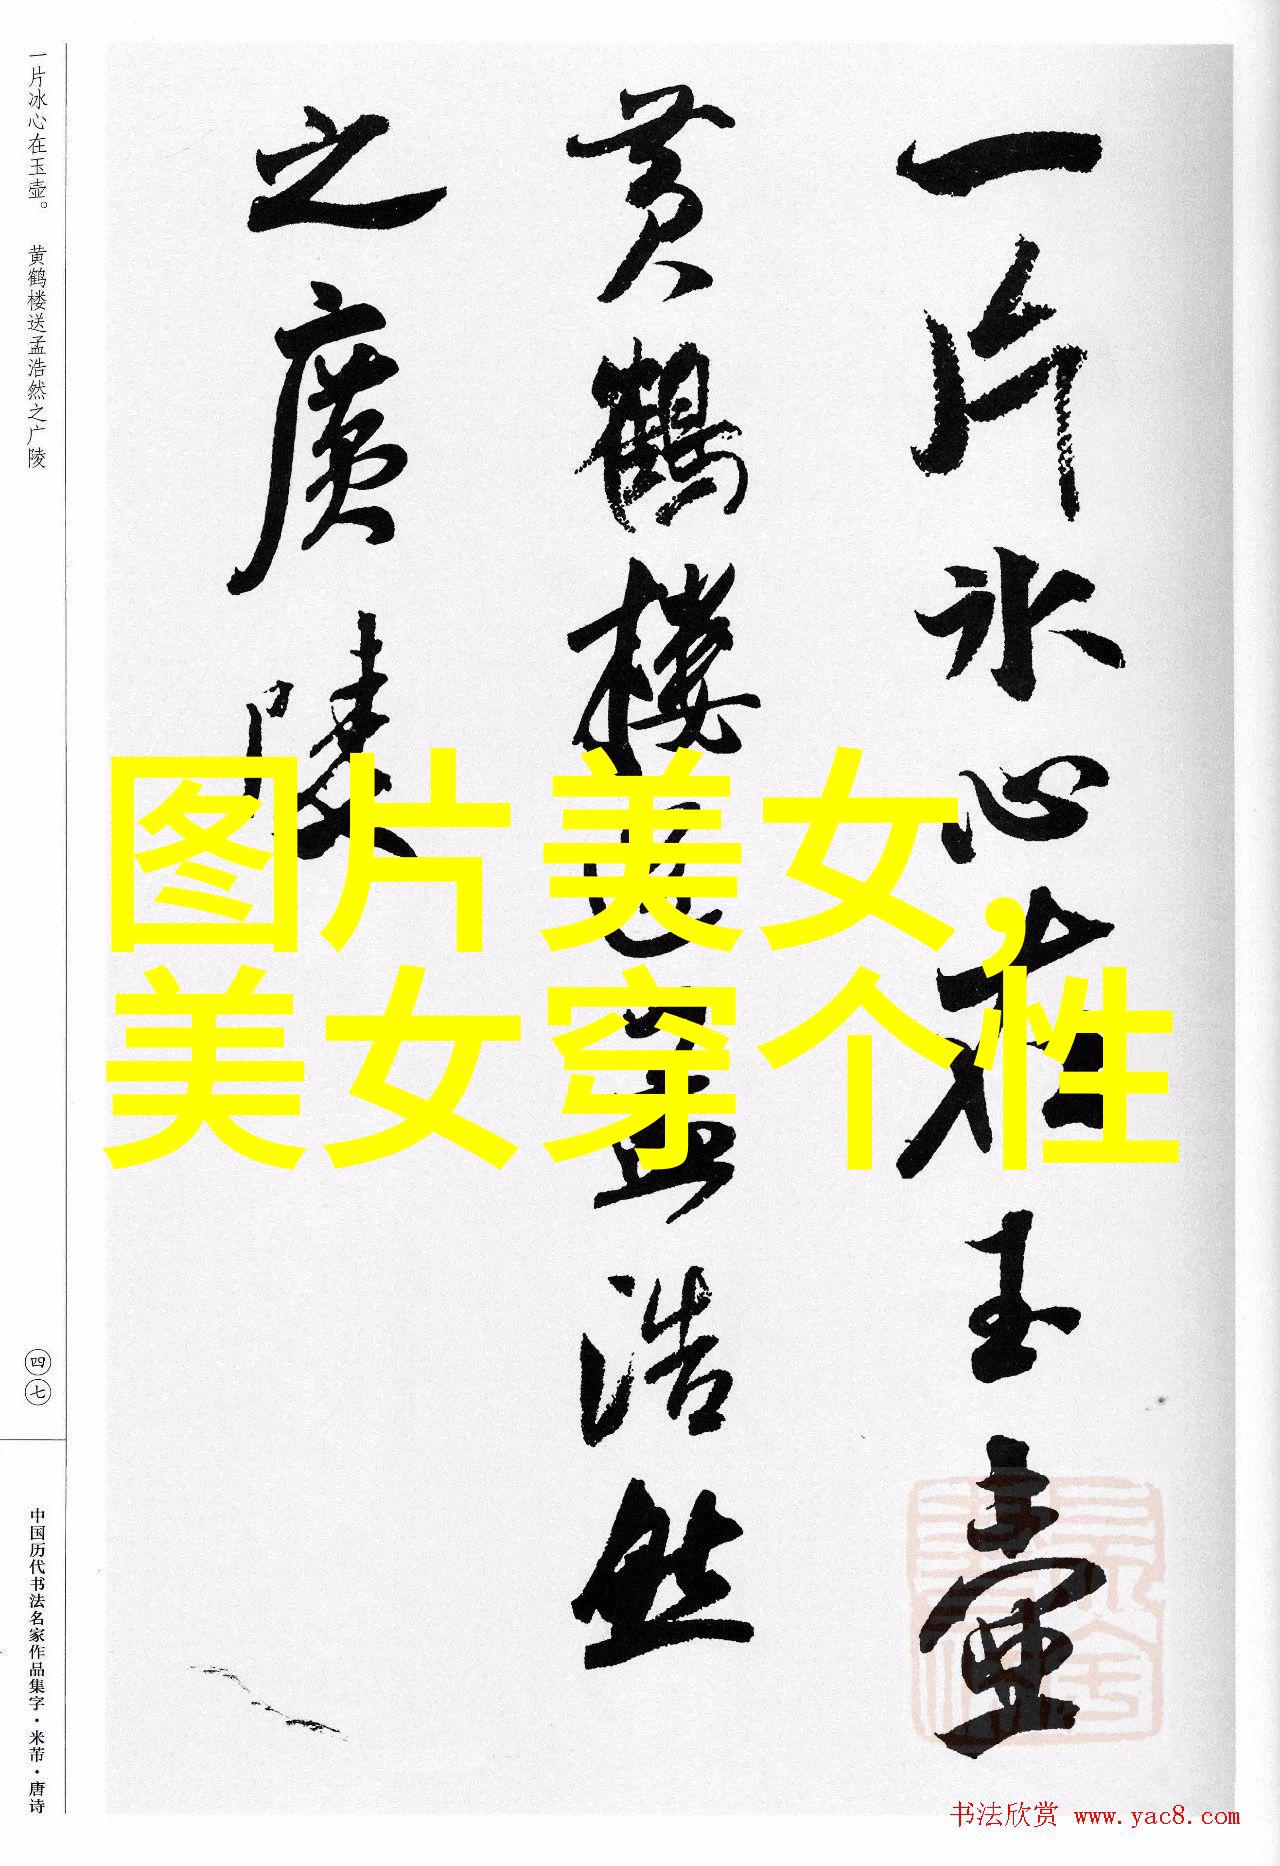 一片冰心在玉壶。 黄鹤楼送孟浩然之广陵
一片冰心在玉壺
黄鶴樓送孟浩然
之廣陵
图片美女,
美女穿个性
四七
中国历代书法名家作品集字·米芾·唐诗
书法欣赏 www.yac8.com